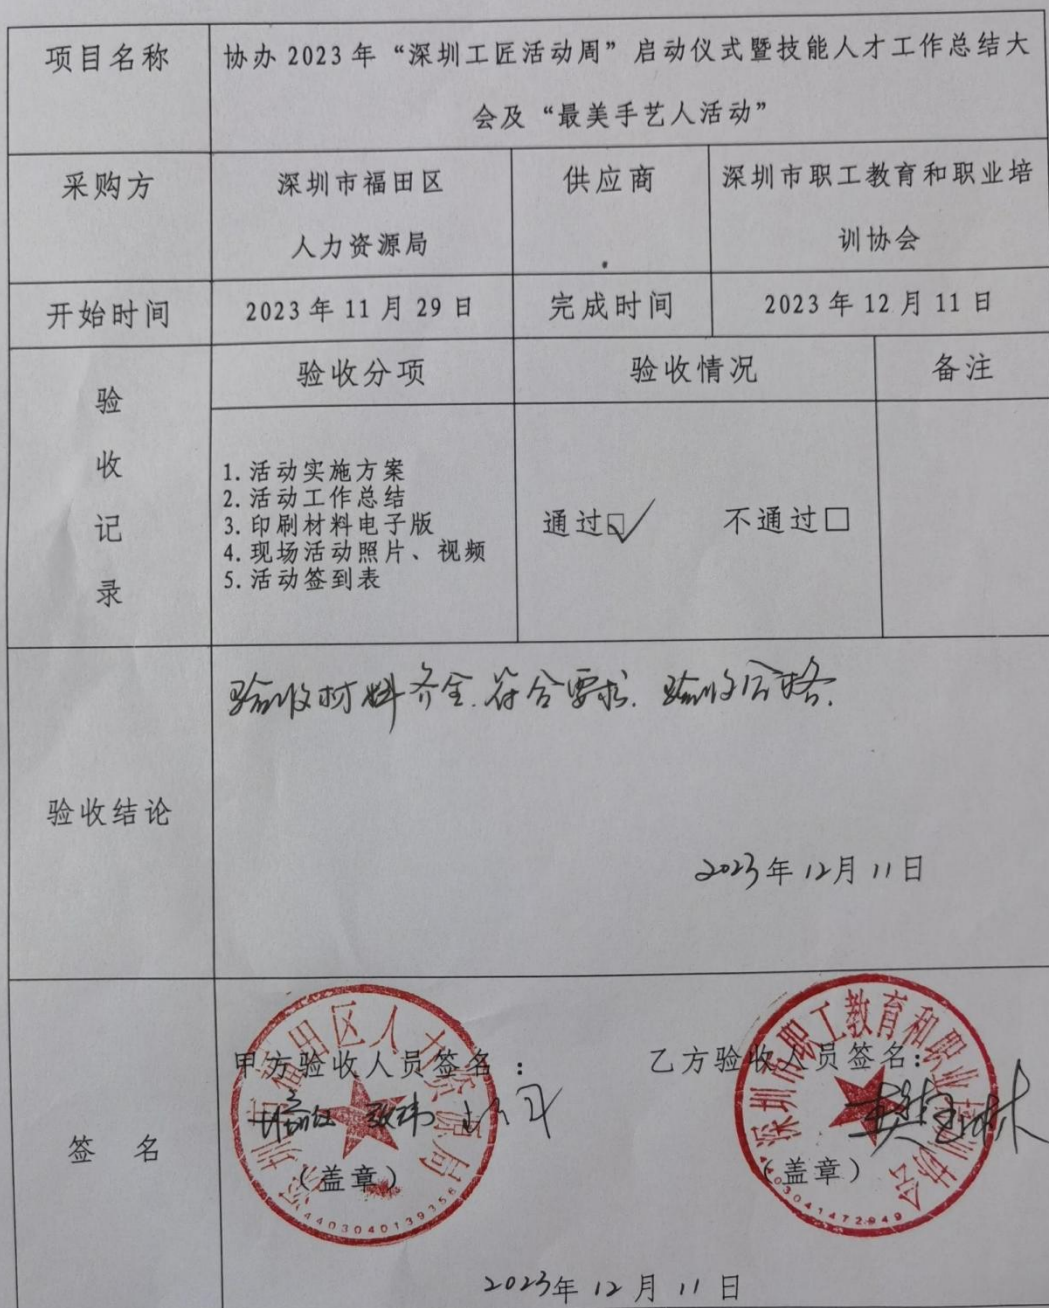 项目名称
协办 2023 年“深圳工匠活动周”启动仪式暨技能人才工作总结大
会及“最美手艺人活动”
采购方
深圳市福田区
人力资源局
供应商
深圳市职工教育和职业培
训协会
开始时间
2023 年 11 月 29 日
完成时间
2023 年 12 月 11 日
验收记录
验收分项
验收情况
备注
1. 活动实施方案
2. 活动工作总结
3. 印刷材料电子版
4. 现场活动照片、视频
5. 活动签到表
通过☑
不通过□
验收结论
验收材料齐全.符合要求.验收合格.
2023年12月11日
签 名
甲方验收人员签名：
（盖章）
深圳市福田区人力资源局
乙方验收人员签名:
（盖章）
深圳市职工教育和职业培训协会
4403041472949
2023年12月11日